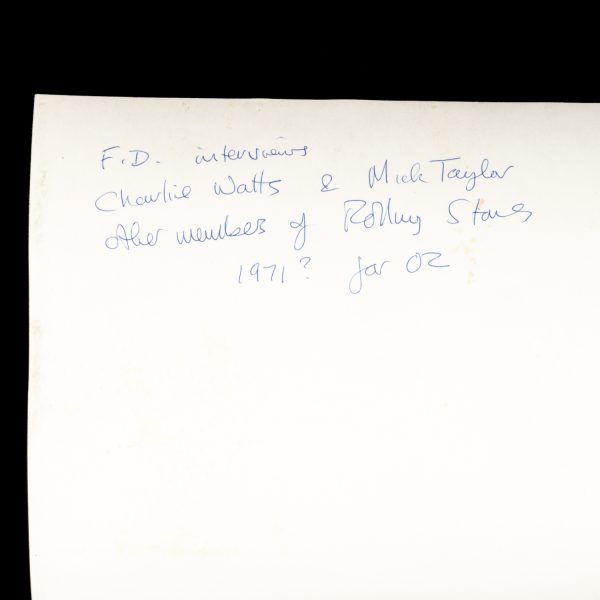 F.D. interviews
Charlie Watts & Mick Taylor
other members of Rolling Stones
1971? for OZ